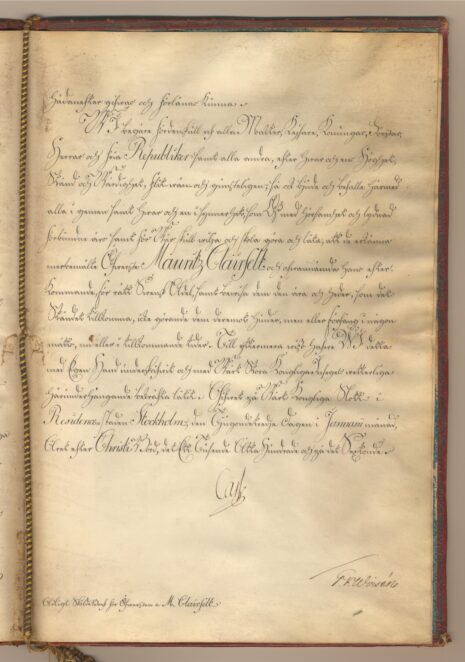 hädanefter gifwas och förläna kunna.
WI begäre fördenskull af alla Magter, Keisare, Konungar, Förstar,
Herrar och fria Republiker samt alla andra, efter hwars och ens Höghet,
Stånd och Wärdighet, så ock bjude och befalle härmed
alla i gemen samt hwar och en i synnerhet, som Oss med hörsamhet och lydnad
förbundne äro samt för Wår skull wilja och skola göra och låta, att de erkänna
merbemälte Öfwerste Mauritz Clairfelt och ofwannämnde hans efter-
kommande för rätt Swensk Adel, samt bewisa dem den ära och heder, som det
Ståndet tillkomma, icke görande dem deremot hinder, men eller förfång i någon
motto, nu eller i tillkommande tider. Till yttermera wisso hafwe WI detta
med Egen Hand underskrifwit och med Wårt Stora Kongliga Insegel wetterligen
härunderhängande bekräfta låtit. på Wårt Kongliga Slott i
Residence-staden Stockholm, den Tjugondetredje Dagen i Januarii månad,
Året efter Christi Börd, det Ett Tusende Åtta Hundrade och på det Sextonde.
Carl
Adeligt Sköldebref för Öfwersten M. Clairfelt.